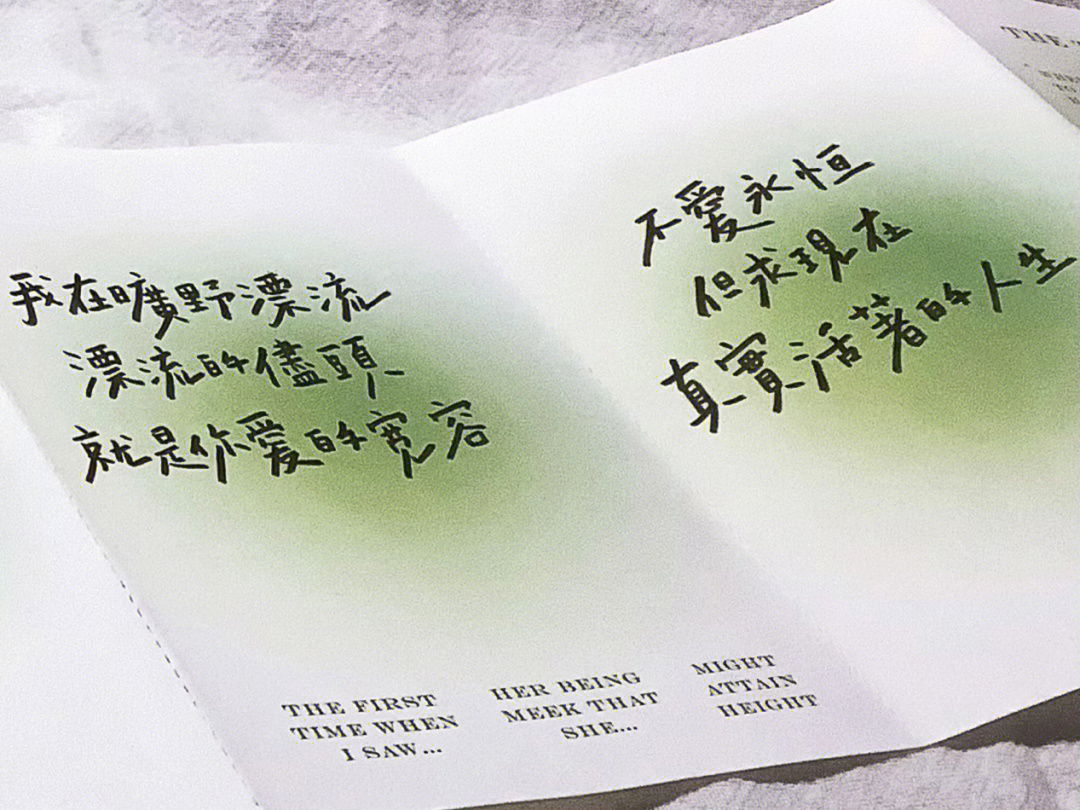 我在曠野漂流
漂流的儘頭
就是你愛的寬容
THE FIRST
TIME WHEN
I SAW...
HER BEING
MEEK THAT
SHE....
MIGHT
ATTAIN
HEIGHT
不愛永恒
但求現在
真實活著的人生
THE